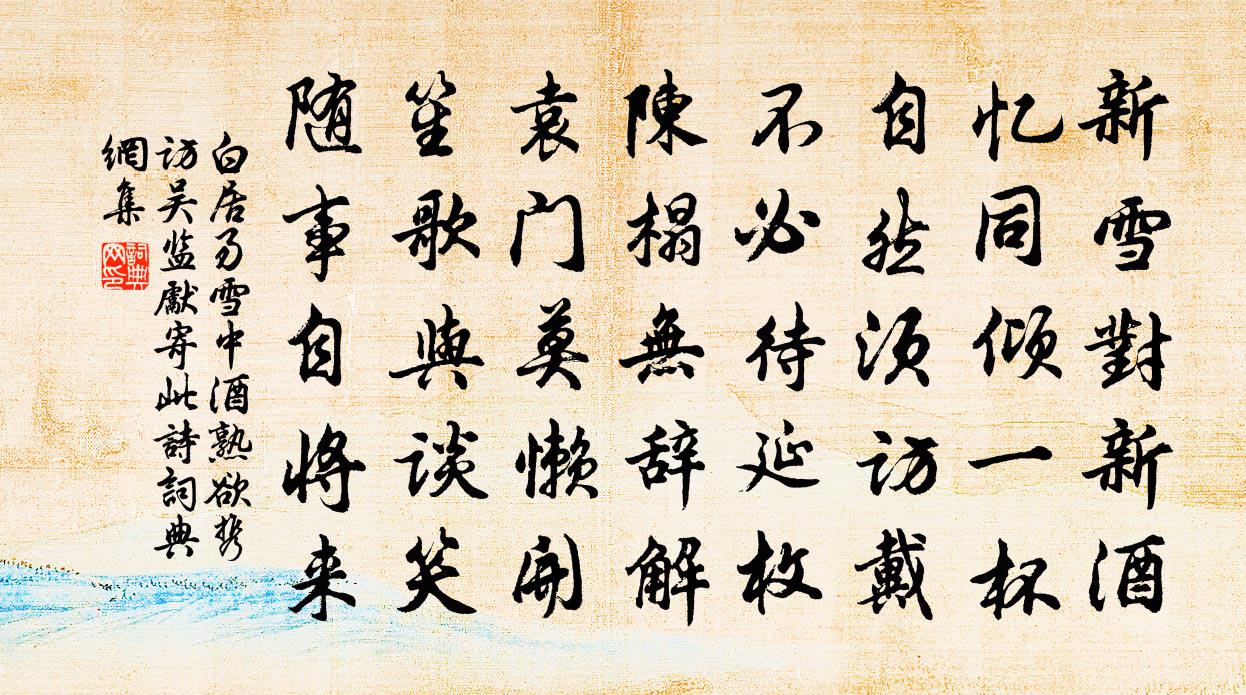 新雪對新酒
忆同倾一杯
自然须访戴
不必待延枚
陳榻無辞解
袁门莫懒開
笙歌與谈笑
随事自将来
白居易雪中酒熟欲携
访吴监獻寄此詩詞典
網集
詞典网印